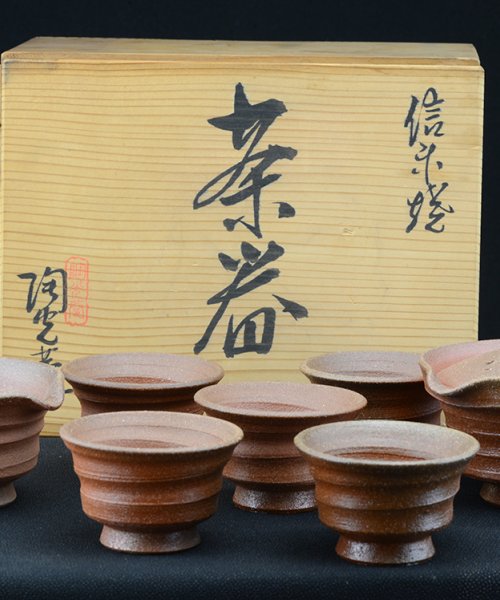 信楽焼
茶器
陶光菴